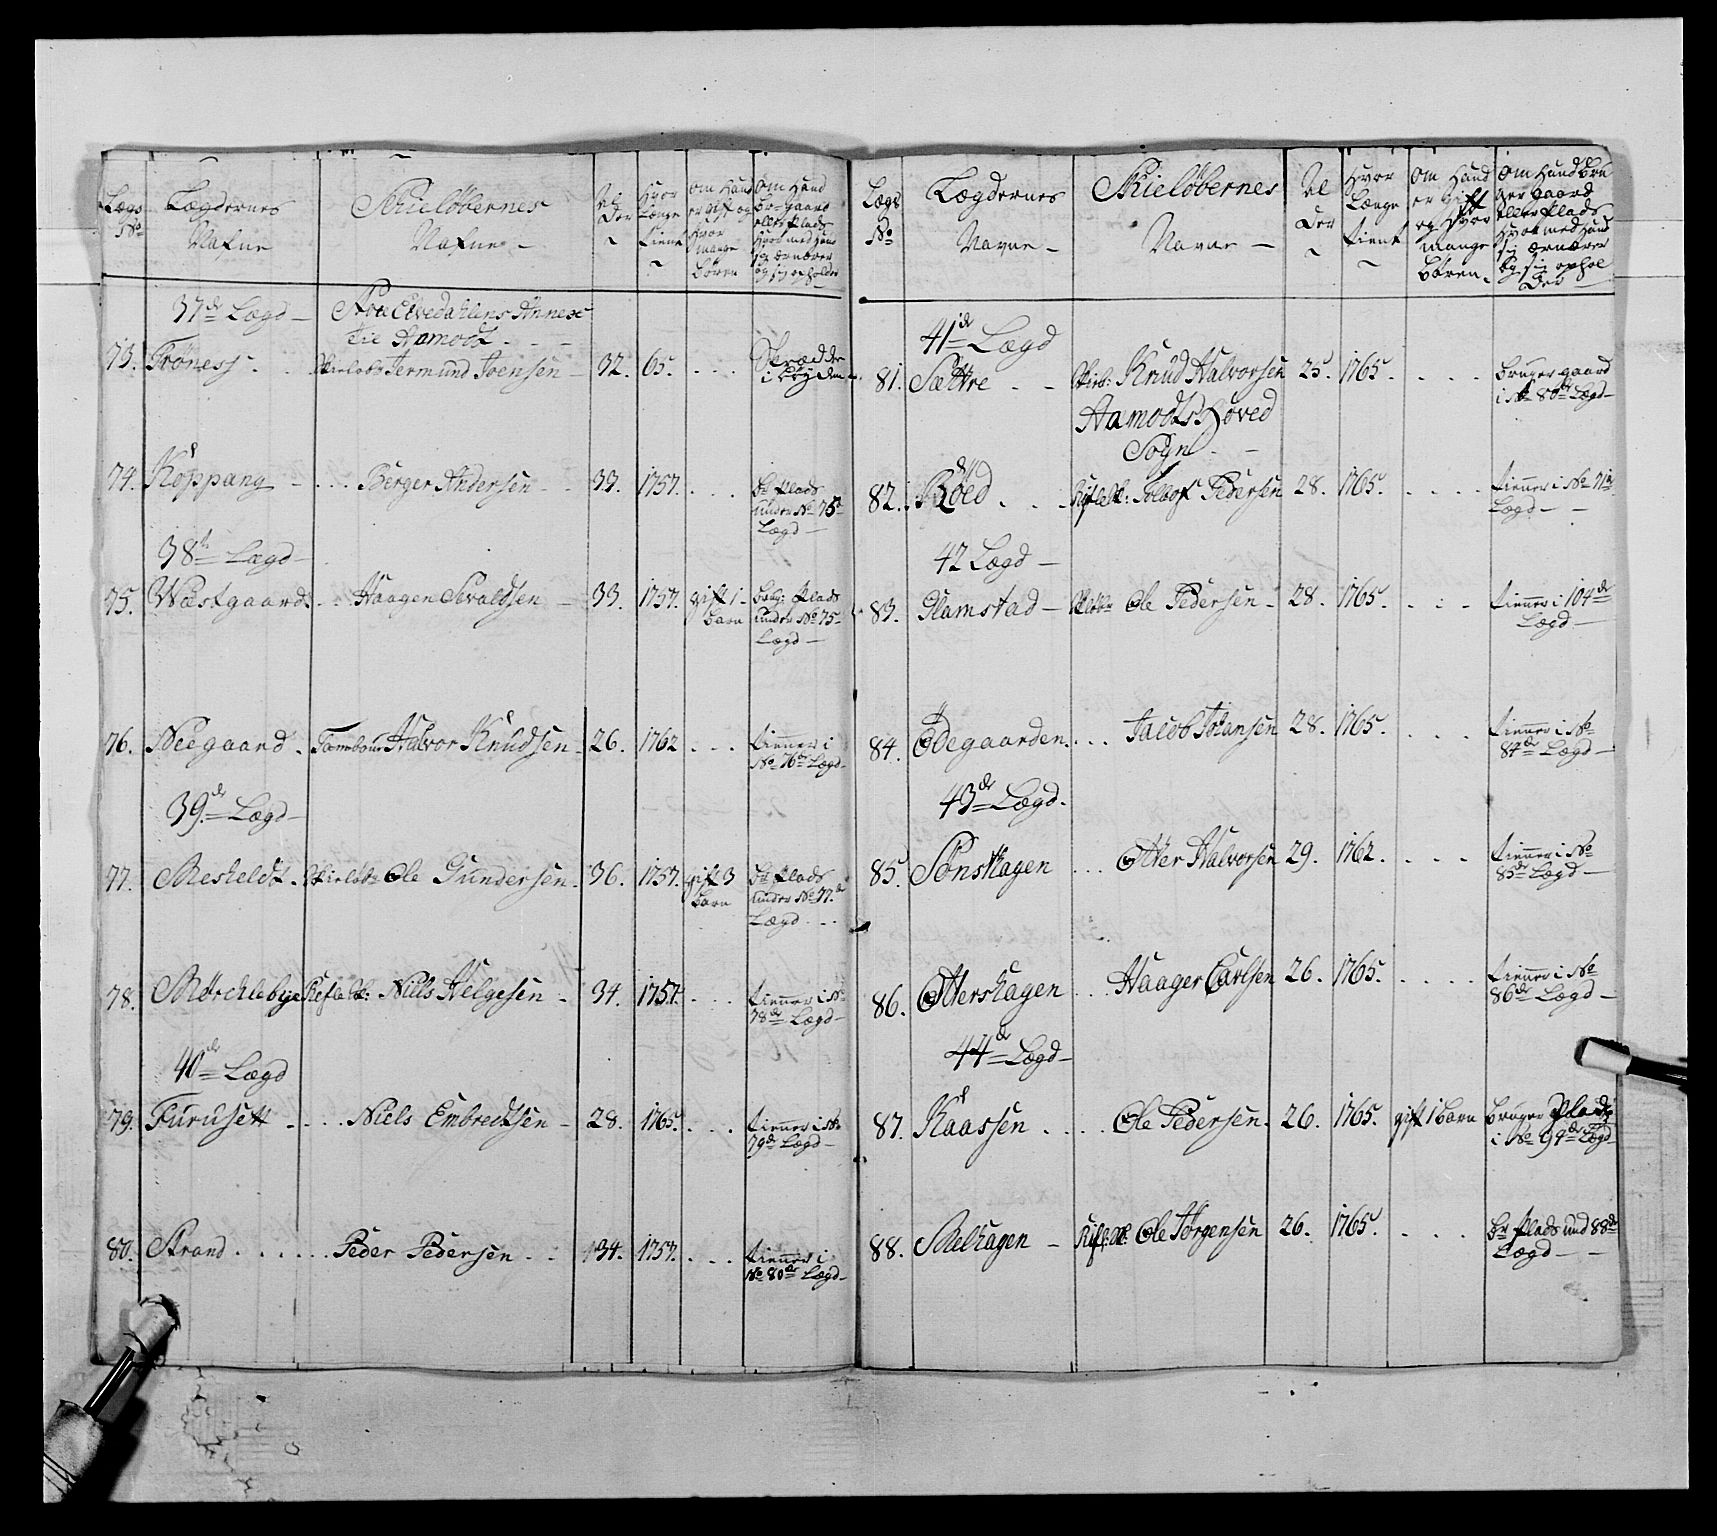 Lægs No
Lægdernes Nafne
Skieløbernes Nafne
Al der
Hvor Længe tient
Om Hand er gift og Hvor mange børen
Om Hand br. gaard eller Plads Hvor med Hand sig ernærer og sig opholder
37de Lægd
Annex til Aamodt
73. Trøness . . Jermund Joensen 32. 65. . . . Skrædder i bøyden
74. Koppang . . . Berger Andersen 33. 1757. . . . br. Plads under No 75 Lægd
38te Lægd
75. Wæstgaard . . Haagen Sivaldsen 33. 1757. gift 1 barn brg. Plads under No 75 Lægd
76. Neegaard . Tambour Halvor Knudsen 26. 1762 . . . tienner i No 76de Lægd
39de Lægd
77. Meskeldt . Ole Gundersen 36. 1757. gift 3 barn br. Plads under No 77de Lægd . . .
78. Mørcklebye Niels Helgesen 34. 1757. . . . tienner i No 78de Lægd
40de Lægd
79. Furusett . . . Niels Embredtsen 28. 1765. . . . tienner i No 79de Lægd
80. Strand . . . . . . Peder Pedersen . . 34. 1757. . . . tienner i No 80de Lægd
Lægs No
Lægdernes Navne
Skieløbernes Navne
Al der
Hvor Længe tient
Om Hand er gift og Hvor mange børen
Om Hand bruger gaard eller Plads Hvor med Hand sig ernærer og sig ophol der
41de Lægd
81. Sættre . . Knud Halvorsen 25. 1765. . . . . bruger gaard i No 80de Lægd
Aamodts Hoved Sogn
82. Røed . . . Tollof Pedersen 28. 1765. . . . . tienner i No 71de Lægd
42 Lægd
83. Glamstad Ole Pedersen 28. 1765. . . . tienner i 104de Lægd
84. Ødegaarden . . . Jacob Johansen 28. 1765. . . . . tienner i No 84de Lægd
43de Lægd.
85. Sønskagen . . . Otter Halvorsen 29. 1762. . . . . tienner i No 85de Lægd
86. Otterskagen . . Haagen Carlsen 26. 1765. . . . . tienner i No 86de Lægd
44de Lægd
87. Kaassen . . . . Ole Pedersen. 26. 1765. gift 1 barn bruger Plads i No 94de Lægd
88. Melhagen Ole Jørgensen 26. 1765. . . . br Plads und 88de Lægd